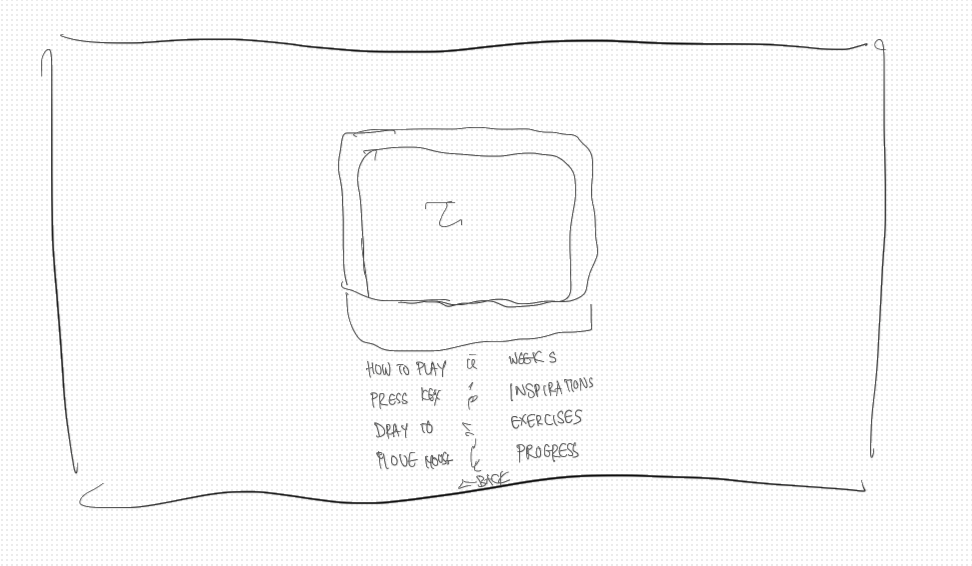 HOW TO PLAY
PRESS KEY
DRAY TO
MOVE MOUSE
WEEKS
INSPIRATIONS
EXERCISES
PROGRESS
← BACK